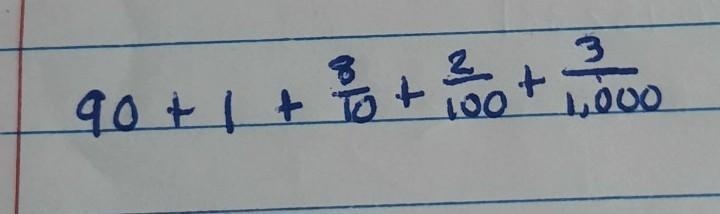 90 + 1 + 8/10 + 2/100 + 3/1,000